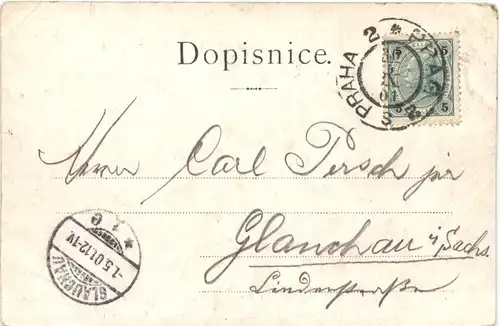 Dopisnice.
PRAHA 2 * PRAG 2
5 5
5
Herrn Carl Persch jr
Glauchau i/Sachs.
Lindenstraße
GLAUCHAU
-1.5.01.12-1V.
* 1 c